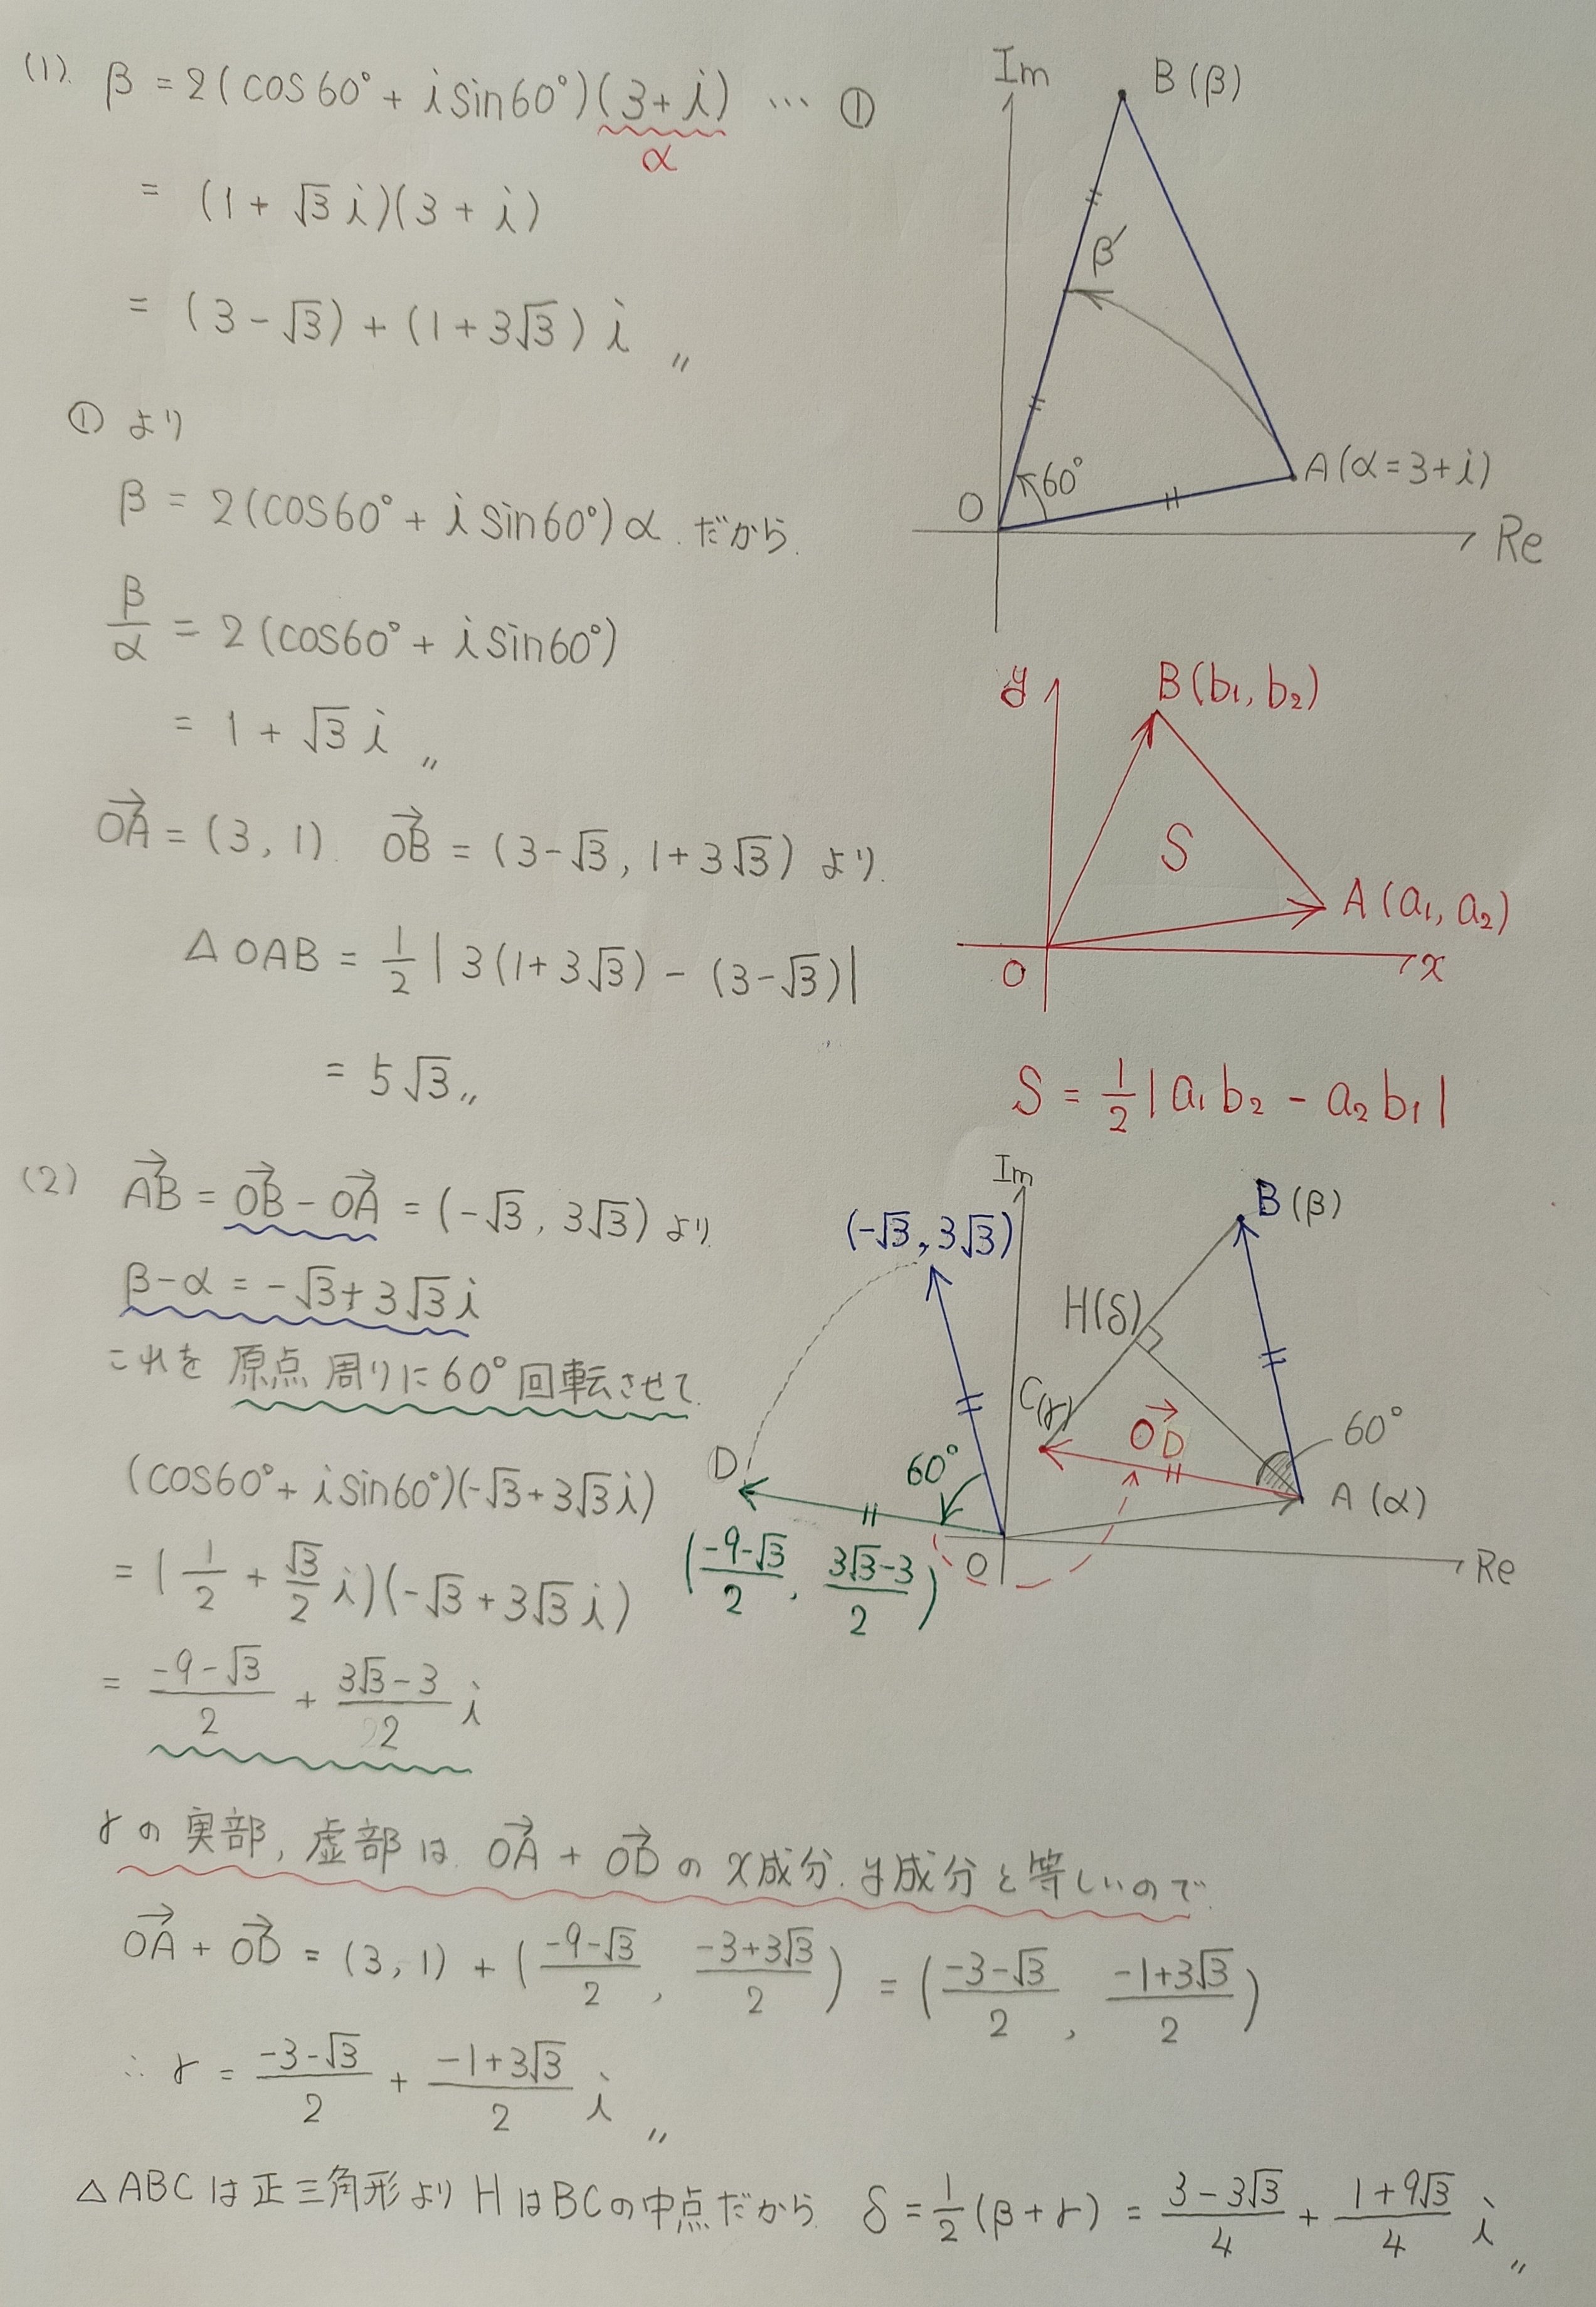 (1). β = 2(cos60° + i sin60°)(3+i) … ①
α
= (1+√3 i)(3+i)
= (3-√3) + (1+3√3) i 〃
① より
β = 2(cos60° + i sin60°)α. だから.
β/α = 2(cos60° + i sin60°)
= 1+√3 i 〃
→OA = (3, 1). →OB = (3-√3, 1+3√3) より.
△OAB = 1/2 | 3(1+3√3) - (3-√3)|
= 5√3 〃
Im
B(β)
β′
60°
A(α=3+i)
O
Re
y
B(b₁, b₂)
S
A(a₁, a₂)
O
x
S = 1/2 | a₁b₂ - a₂b₁ |
(2) →AB = →OB - →OA = (-√3, 3√3) より
β-α = -√3+3√3 i
これを 原点周りに60°回転させて.
(cos60° + i sin60°)(-√3+3√3 i)
= (1/2 + √3/2 i)(-√3+3√3 i)
= (-9-√3)/2 + (3√3-3)/2 i
Im
B(β)
(-√3, 3√3)
H(δ)
C(γ)
→OD
60°
60°
D
A(α)
O
Re
((-9-√3)/2, (3√3-3)/2)
γの実部, 虚部は. →OA + →OD の x成分. y成分と等しいので.
→OA + →OD = (3, 1) + ((-9-√3)/2, (-3+3√3)/2) = ((-3-√3)/2, (-1+3√3)/2)
∴ γ = (-3-√3)/2 + (-1+3√3)/2 i 〃
△ABCは正三角形より HはBCの中点だから. δ = 1/2(β+γ) = (3-3√3)/4 + (1+9√3)/4 i 〃